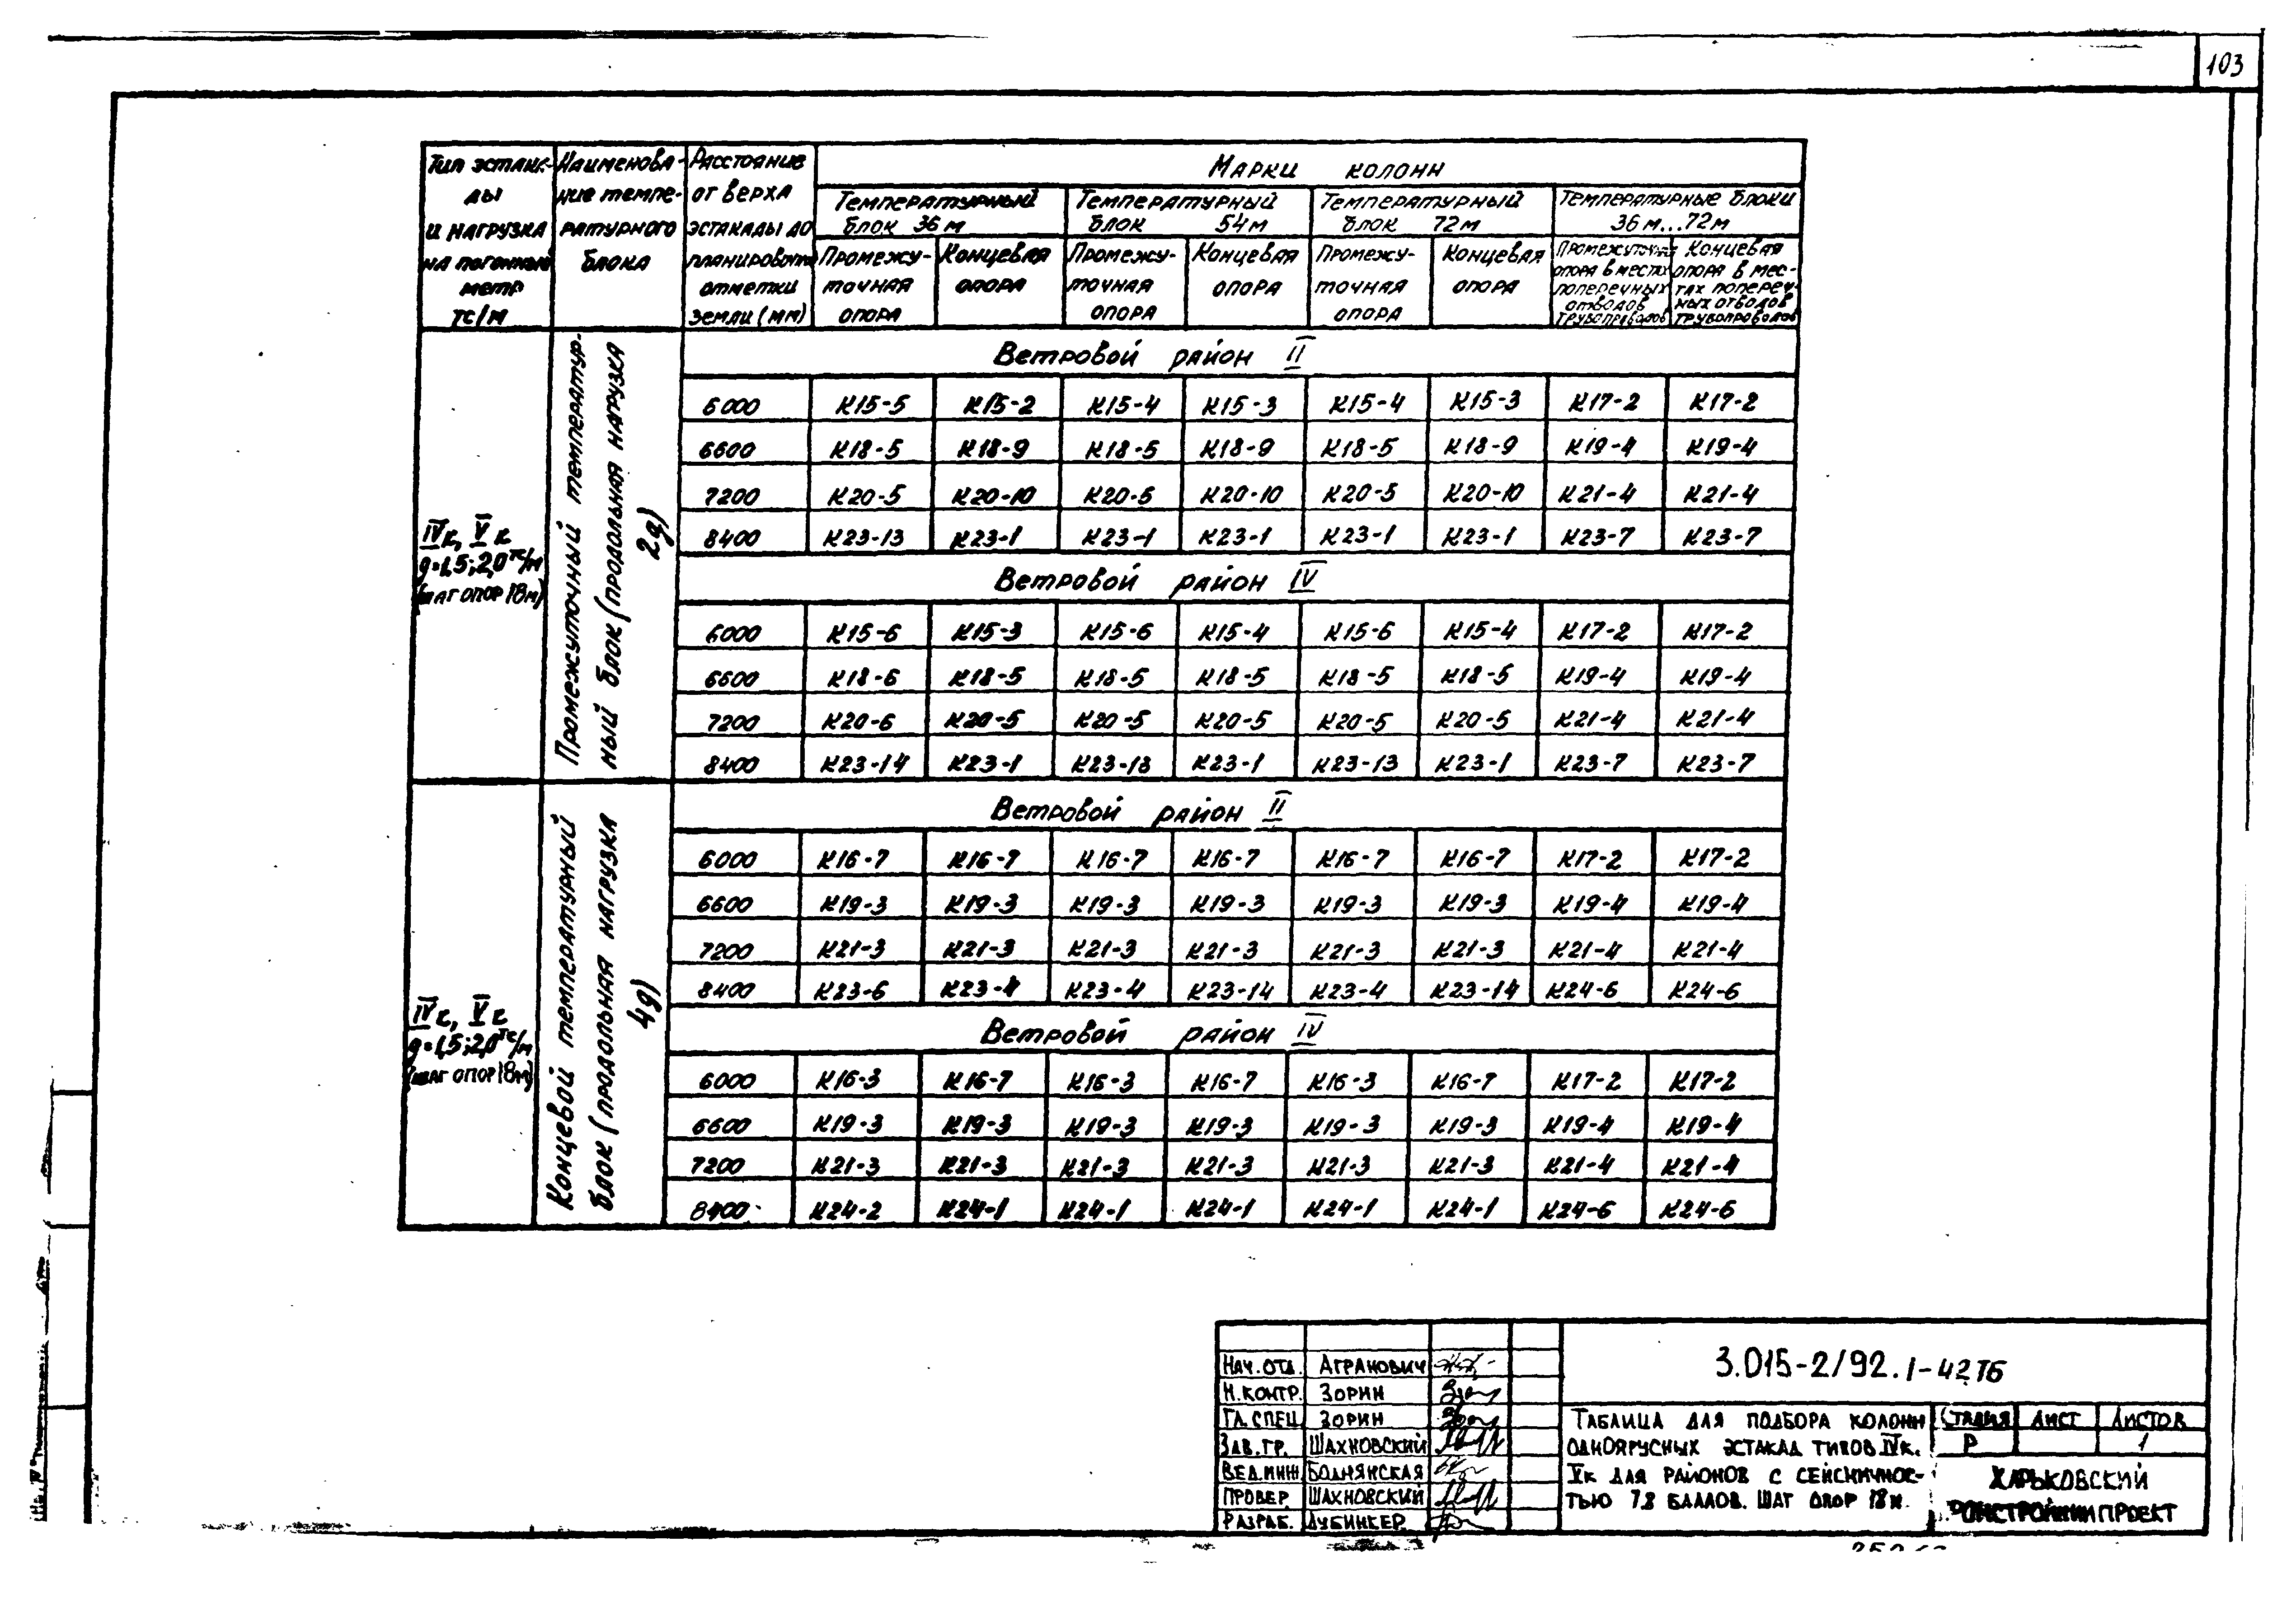 103
Тип эстака-
ды
и нагрузка
на погонный
метр
тс/м
Наименова-
ние темпе-
ратурного
блока
Расстояние
от верха
эстакады до
планировочн.
отметки
земли (мм)
Марки колонн
Температурный
блок 36 м
Температурный
блок 54м
Температурный
блок 72м
Температурные блоки
36 м...72м
Промежу-
точная
опора
Концевая
опора
Промежу-
точная
опора
Концевая
опора
Промежу-
точная
опора
Концевая
опора
Промежуточная
опора в местах
поперечных
отводов
трубопроводов
Концевая
опора в мес-
тах попереч-
ных отводов
трубопроводов
IVк, Vк
g=1,5;2,0 тс/м
(шаг опор 18м)
Промежуточный температур-
ный блок (продольная нагрузка
2g)
Ветровой район II
6000 К15-5 К15-2 К15-4 К15-3 К15-4 К15-3 К17-2 К17-2
6600 К18-5 К18-9 К18-5 К18-9 К18-5 К18-9 К19-4 К19-4
7200 К20-5 К20-10 К20-5 К20-10 К20-5 К20-10 К21-4 К21-4
8400 К23-13 К23-1 К23-1 К23-1 К23-1 К23-1 К23-7 К23-7
Ветровой район IV
6000 К15-6 К15-3 К15-6 К15-4 К15-6 К15-4 К17-2 К17-2
6600 К18-6 К18-5 К18-5 К18-5 К18-5 К18-5 К19-4 К19-4
7200 К20-6 К20-5 К20-5 К20-5 К20-5 К20-5 К21-4 К21-4
8400 К23-14 К23-1 К23-13 К23-1 К23-13 К23-1 К23-7 К23-7
IVк, Vк
g=1,5;2,0 тс/м
(шаг опор 18м)
Концевой температурный
блок (продольная нагрузка
4g)
Ветровой район II
6000 К16-7 К16-7 К16-7 К16-7 К16-7 К16-7 К17-2 К17-2
6600 К19-3 К19-3 К19-3 К19-3 К19-3 К19-3 К19-4 К19-4
7200 К21-3 К21-3 К21-3 К21-3 К21-3 К21-3 К21-4 К21-4
8400 К23-6 К23-4 К23-4 К23-14 К23-4 К23-14 К24-6 К24-6
Ветровой район IV
6000 К16-3 К16-7 К16-3 К16-7 К16-3 К16-7 К17-2 К17-2
6600 К19-3 К19-3 К19-3 К19-3 К19-3 К19-3 К19-4 К19-4
7200 К21-3 К21-3 К21-3 К21-3 К21-3 К21-3 К21-4 К21-4
8400 К24-2 К24-1 К24-1 К24-1 К24-1 К24-1 К24-6 К24-6
Нач.отд. Агранович
Н.контр. Зорин
Гл.спец Зорин
Зав.гр. Шахновский
Вед.инж Боднянская
Провер. Шахновский
Разраб. Дубинкер
3.015-2/92.1-42ТБ
Таблица для подбора колонн
одноярусных эстакад типов IVк.
Vк для районов с сейсмичнос-
тью 7.8 баллов. Шаг опор 18м.
Стадия Лист Листов
Р 1
Харьковский
Промстройниипроект